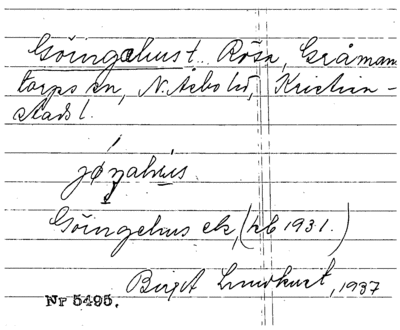 Göingehus t. Röša, Gråman-
torps sn, N. Åsbo hd, Kristian-
stads l.
jøŋahus.
Göingehus ek, (hb 1931.)
Birgit Lundkvist, 1937
Nr 5495.